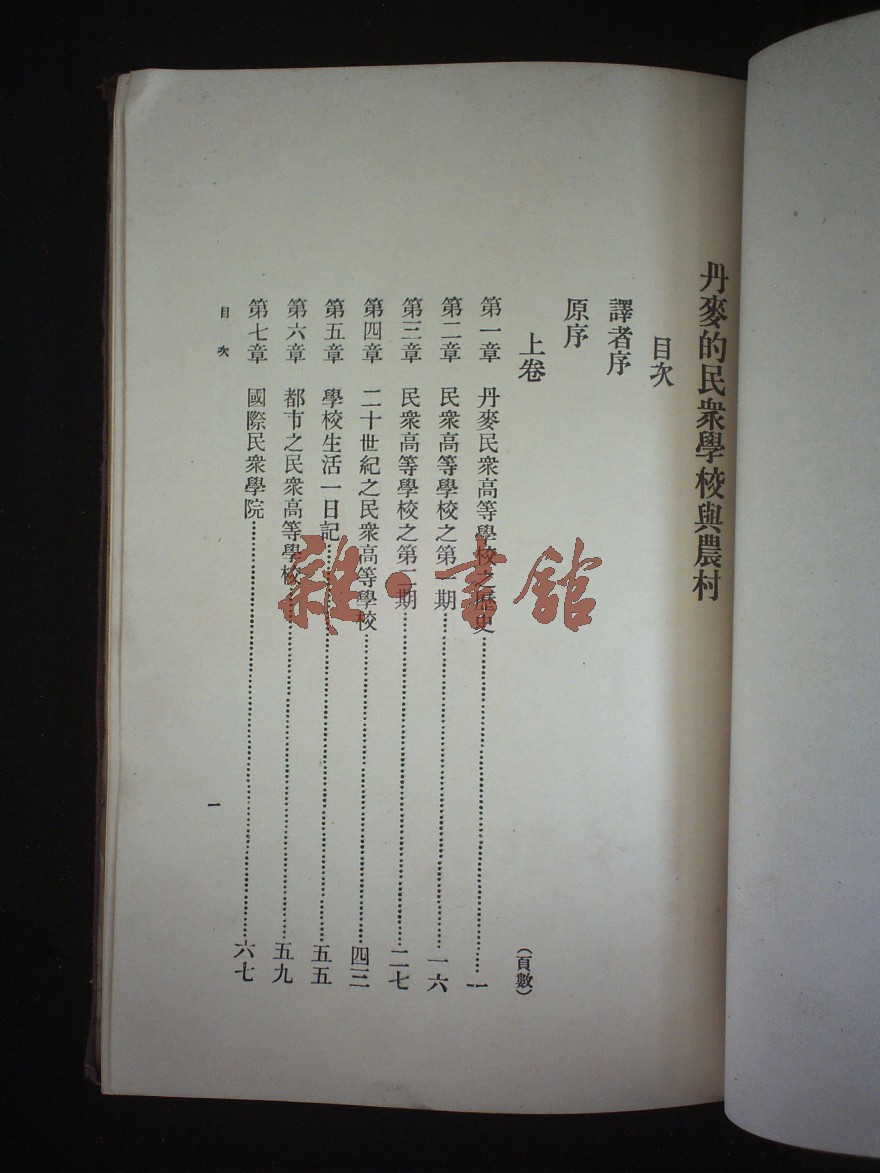 丹麥的民衆學校與農村
目次
譯者序
原序
上卷 (頁數)
第一章 丹麥民衆高等學校之歷史 一
第二章 民衆高等學校之第一期 一六
第三章 民衆高等學校之第二期 二七
第四章 二十世紀之民衆高等學校 四三
第五章 學校生活一日記 五五
第六章 都市之民衆高等學校 五九
第七章 國際民衆學院 六七
目次 一
雜·書館